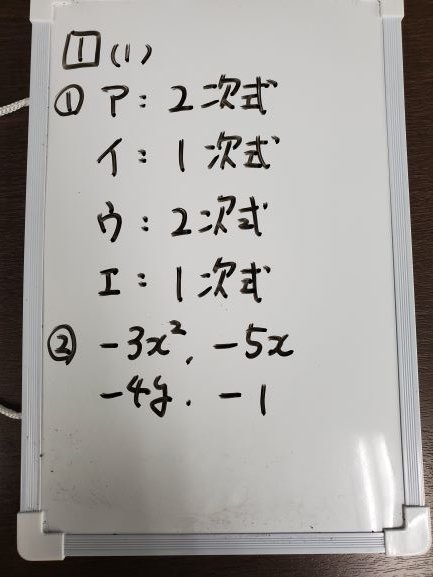 1 (1)
① ア: 2次式
イ: 1次式
ウ: 2次式
エ: 1次式
② -3x², -5x
-4y, -1